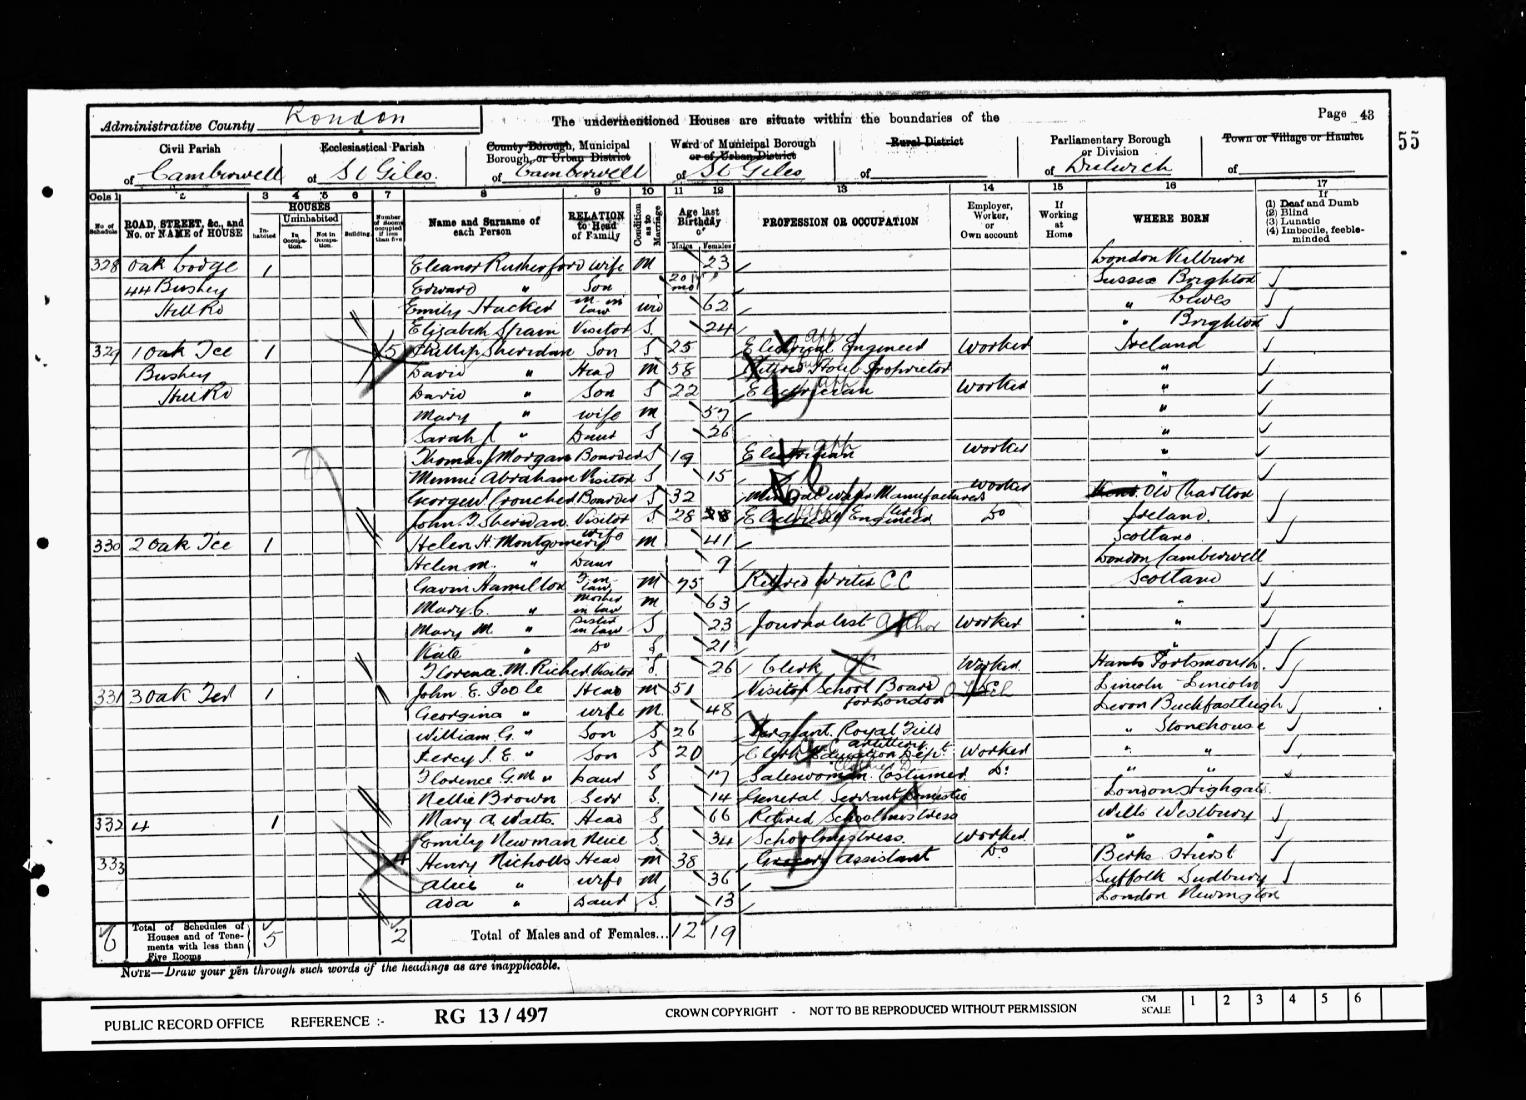 Page 43
55
Administrative County London
The undermentioned Houses are situate within the boundaries of the
Civil Parish of Camberwell
Ecclesiastical Parish of St Giles.
County Borough, Municipal Borough, or Urban District of Camberwell
Ward of Municipal Borough or of Urban District of St Giles
Rural District of
Parliamentary Borough or Division of Dulwich
Town or Village or Hamlet of
Cols 1 2 3 4 5 6 7 8 9 10 11 12 13 14 15 16 17
No. of Schedule
ROAD, STREET, &c., and No. or NAME of HOUSE
HOUSES
Inhabited
Uninhabited
In Occupation.
Not in Occupation.
Building
Number of Rooms occupied if less than five
Name and Surname of each Person
RELATION to Head of Family
Condition as to Marriage
Age last Birthday of
Males Females
PROFESSION OR OCCUPATION
Employer, Worker, or Own account
If Working at Home
WHERE BORN
If (1) Deaf and Dumb (2) Blind (3) Lunatic (4) Imbecile, feeble-minded
328 Oak Lodge 1 Eleanor Rutherford Wife M 23 London Kilburn
44 Bushey Edward " Son 20 mo Sussex Brighton
Hill Rd Emily Hacker M in law Wid 62 " Lewes
Elizabeth Spain Visitor S 24 " Brighton
329 1 Oak Tce 1 5 Phillip Sheridan Son S 25 Electrical Engineer Worker Ireland
Bushey David " Head M 58 Retired Hotel Proprietor "
Hill Rd David " Son S 22 Electrician Worker "
Mary " Wife M 57 "
Sarah J " Daur S 26 "
Thomas J Morgan Boarder S 19 Electrician Worker "
Minnie Abraham Visitor S 15 "
George W. Croucher Boarder S 32 Mineral Water Manufacturer Worker Kent. Old Charlton
John T. Sheridan. Visitor S. 28 Electrical Engineer Do Ireland.
330 2 Oak Tce 1 Helen H Montgomery Wife M 41 Scotland
Helen M. " Daur 9 London Camberwell
Gavin Hamilton F in law M 75 Retired Writer C.C Scotland
Mary C. " Mother in law M 63 "
Mary M. " Sister in law S 23 Journalist Author Worker "
Kate " Do S 21 "
Florence. M. Riches Visitor S 26 Clerk Worker. Hants Portsmouth.
331 3 Oak Ter 1 John E. Poole Head M 51 Visitor School Board for London Lincoln Lincoln
Georgina " Wife M. 48 Devon Buckfastleigh
William G. " Son S 26 Sergeant. Royal Field Artillery " Stonehouse
Percy J. E " Son S 20 Clerk Education Dept. Worker " "
Florence G.M " Daur S 17 Saleswoman. Costumer Do " "
Nellie Brown Serv S. 14 General Servant Domestic London Highgate.
332 4 1 Mary A Watts. Head S 66 Retired Schoolmistress Wilts Westbury
Emily Newman Neice S. 34 Schoolmistress. Worker. " "
333 4 Henry Nicholls Head M 38 Grocery Assistant Do Berks Hurst
Alice " Wife M 36 Suffolk Sudbury
Ada " Daur S. 13 London Newington
6 Total of Schedules of Houses and of Tenements with less than Five Rooms 5 2 Total of Males and of Females... 12 19
NOTE—Draw your pen through such words of the headings as are inapplicable.
PUBLIC RECORD OFFICE REFERENCE :- RG 13 / 497 CROWN COPYRIGHT - NOT TO BE REPRODUCED WITHOUT PERMISSION CM SCALE 1 2 3 4 5 6